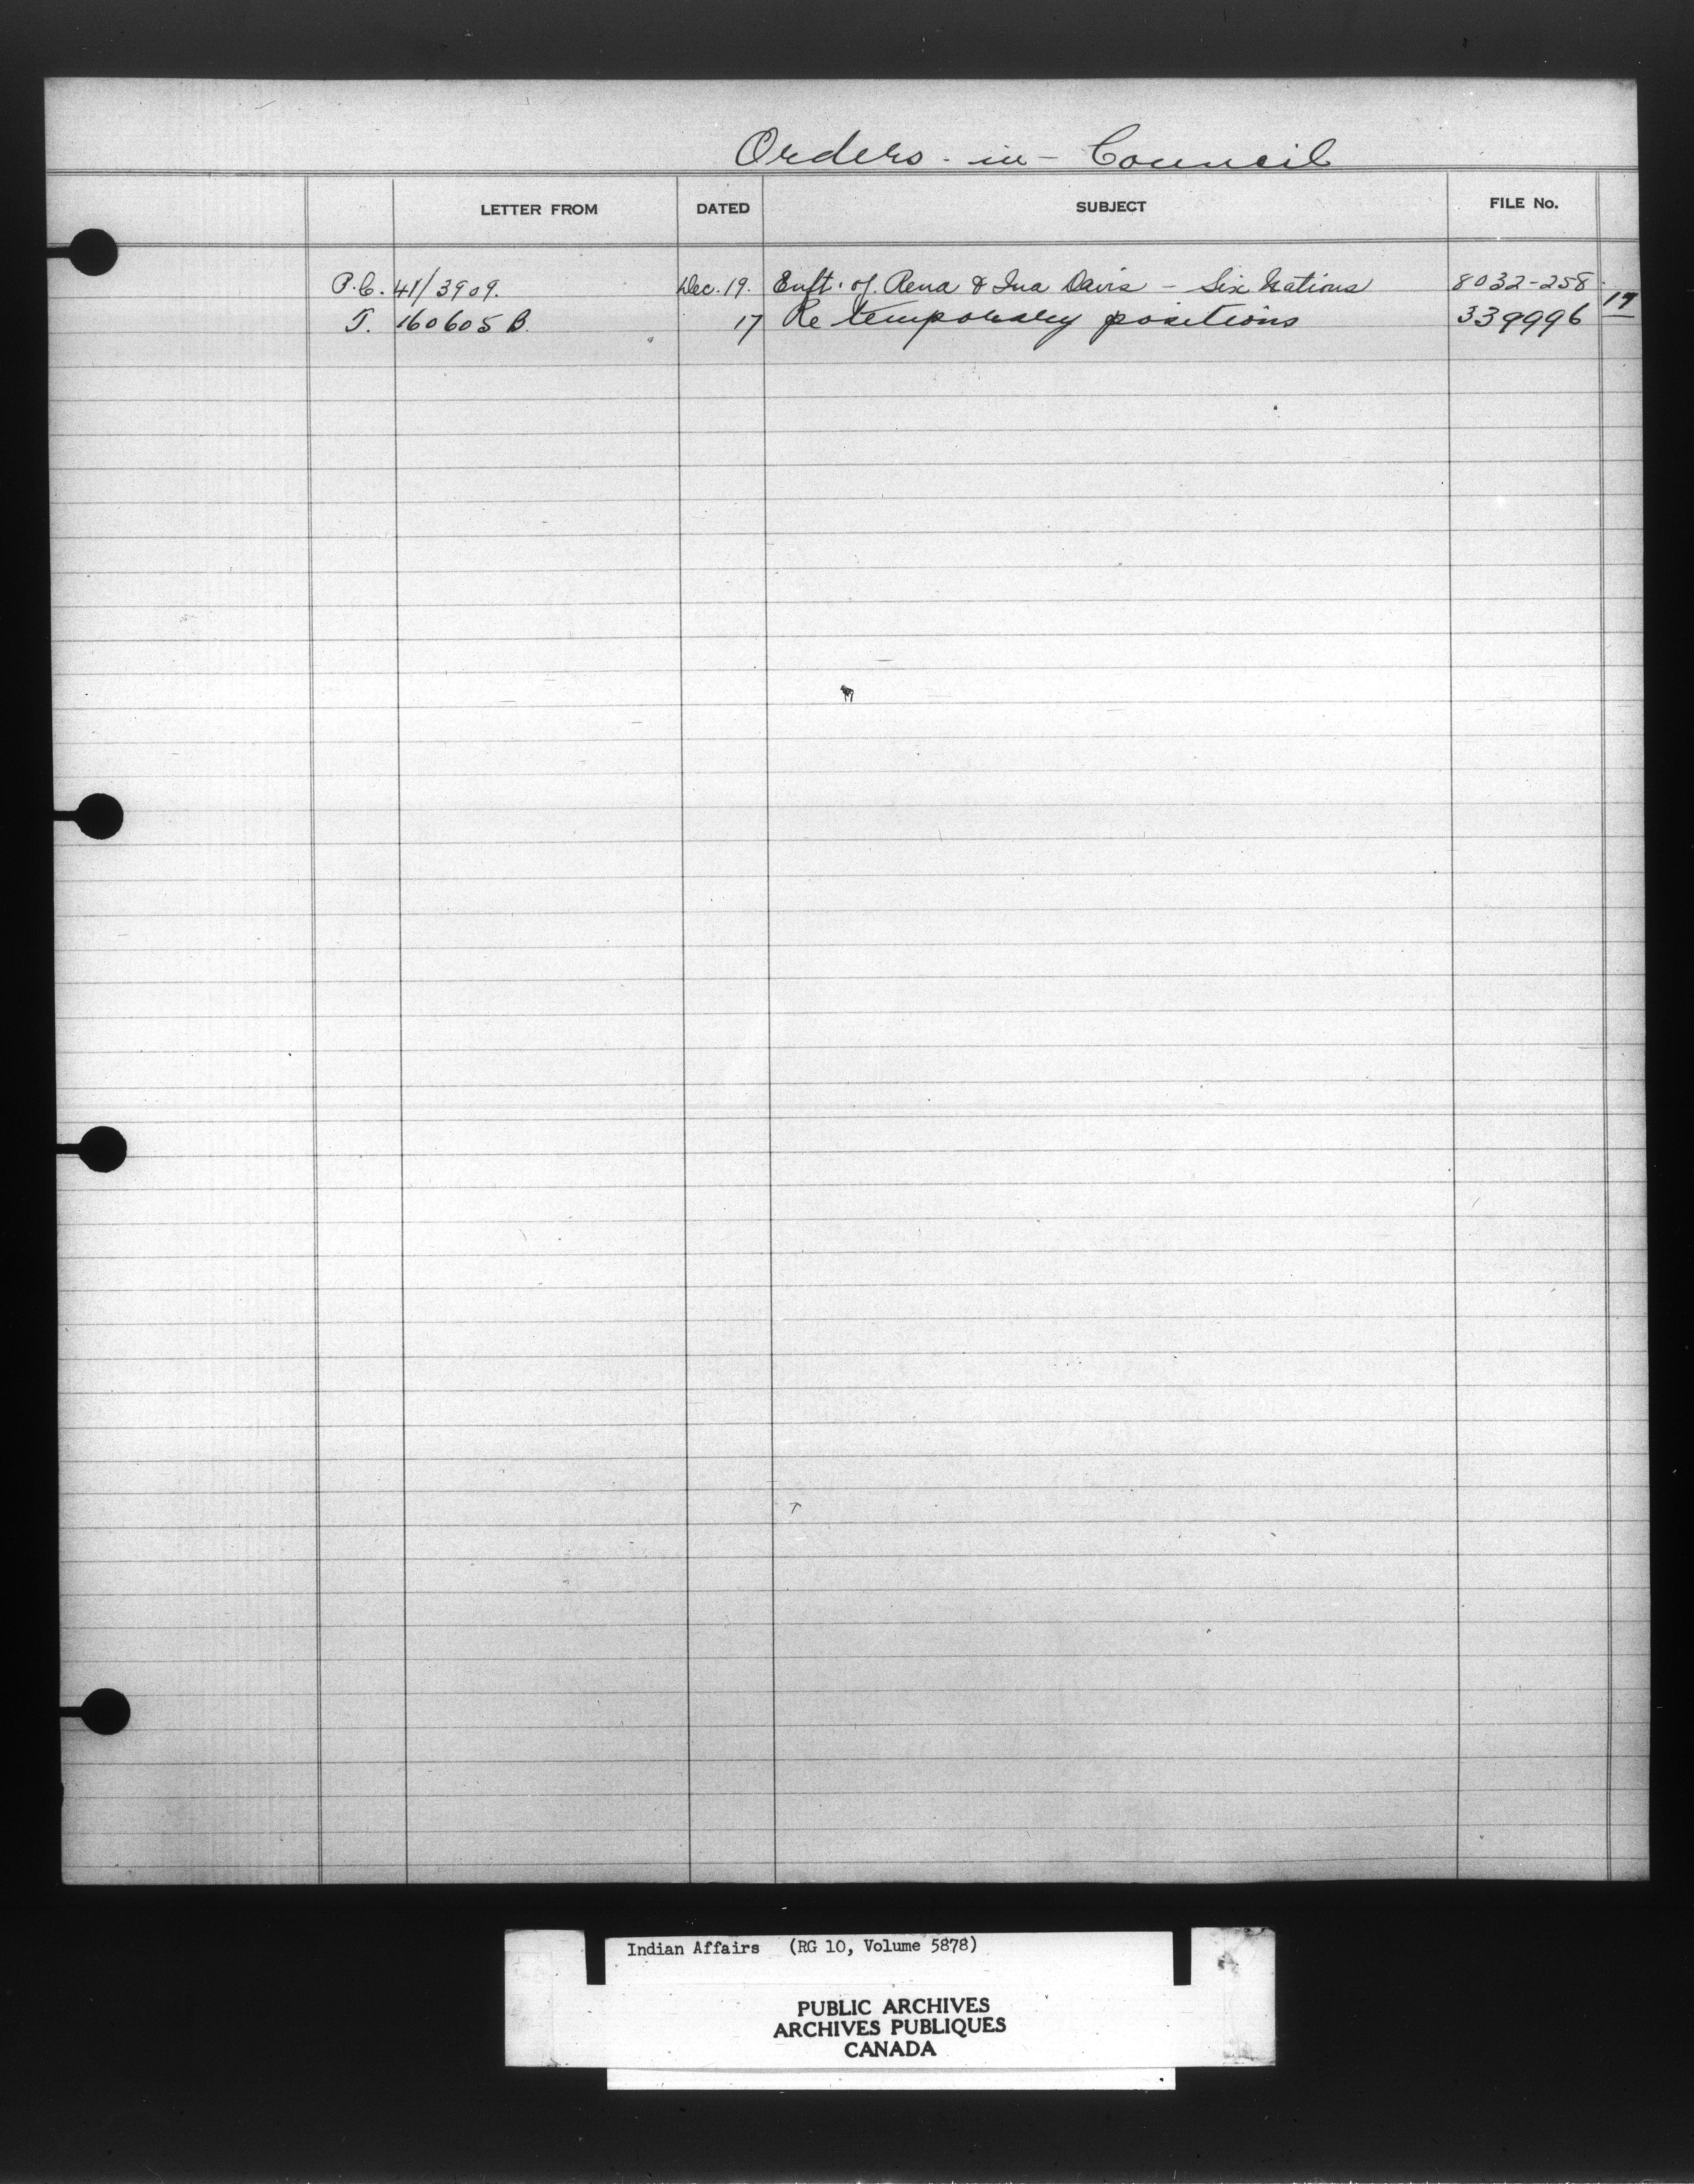 Orders-in-Council
LETTER FROM DATED SUBJECT FILE No.
P.C. 41/3909. Dec. 19. Enft. of Rena & Ina Davis - Six Nations 8032-258.
T. 160605 B. 17 Re temporary positions 339996 17
Indian Affairs (RG 10, Volume 5878)
PUBLIC ARCHIVES
ARCHIVES PUBLIQUES
CANADA